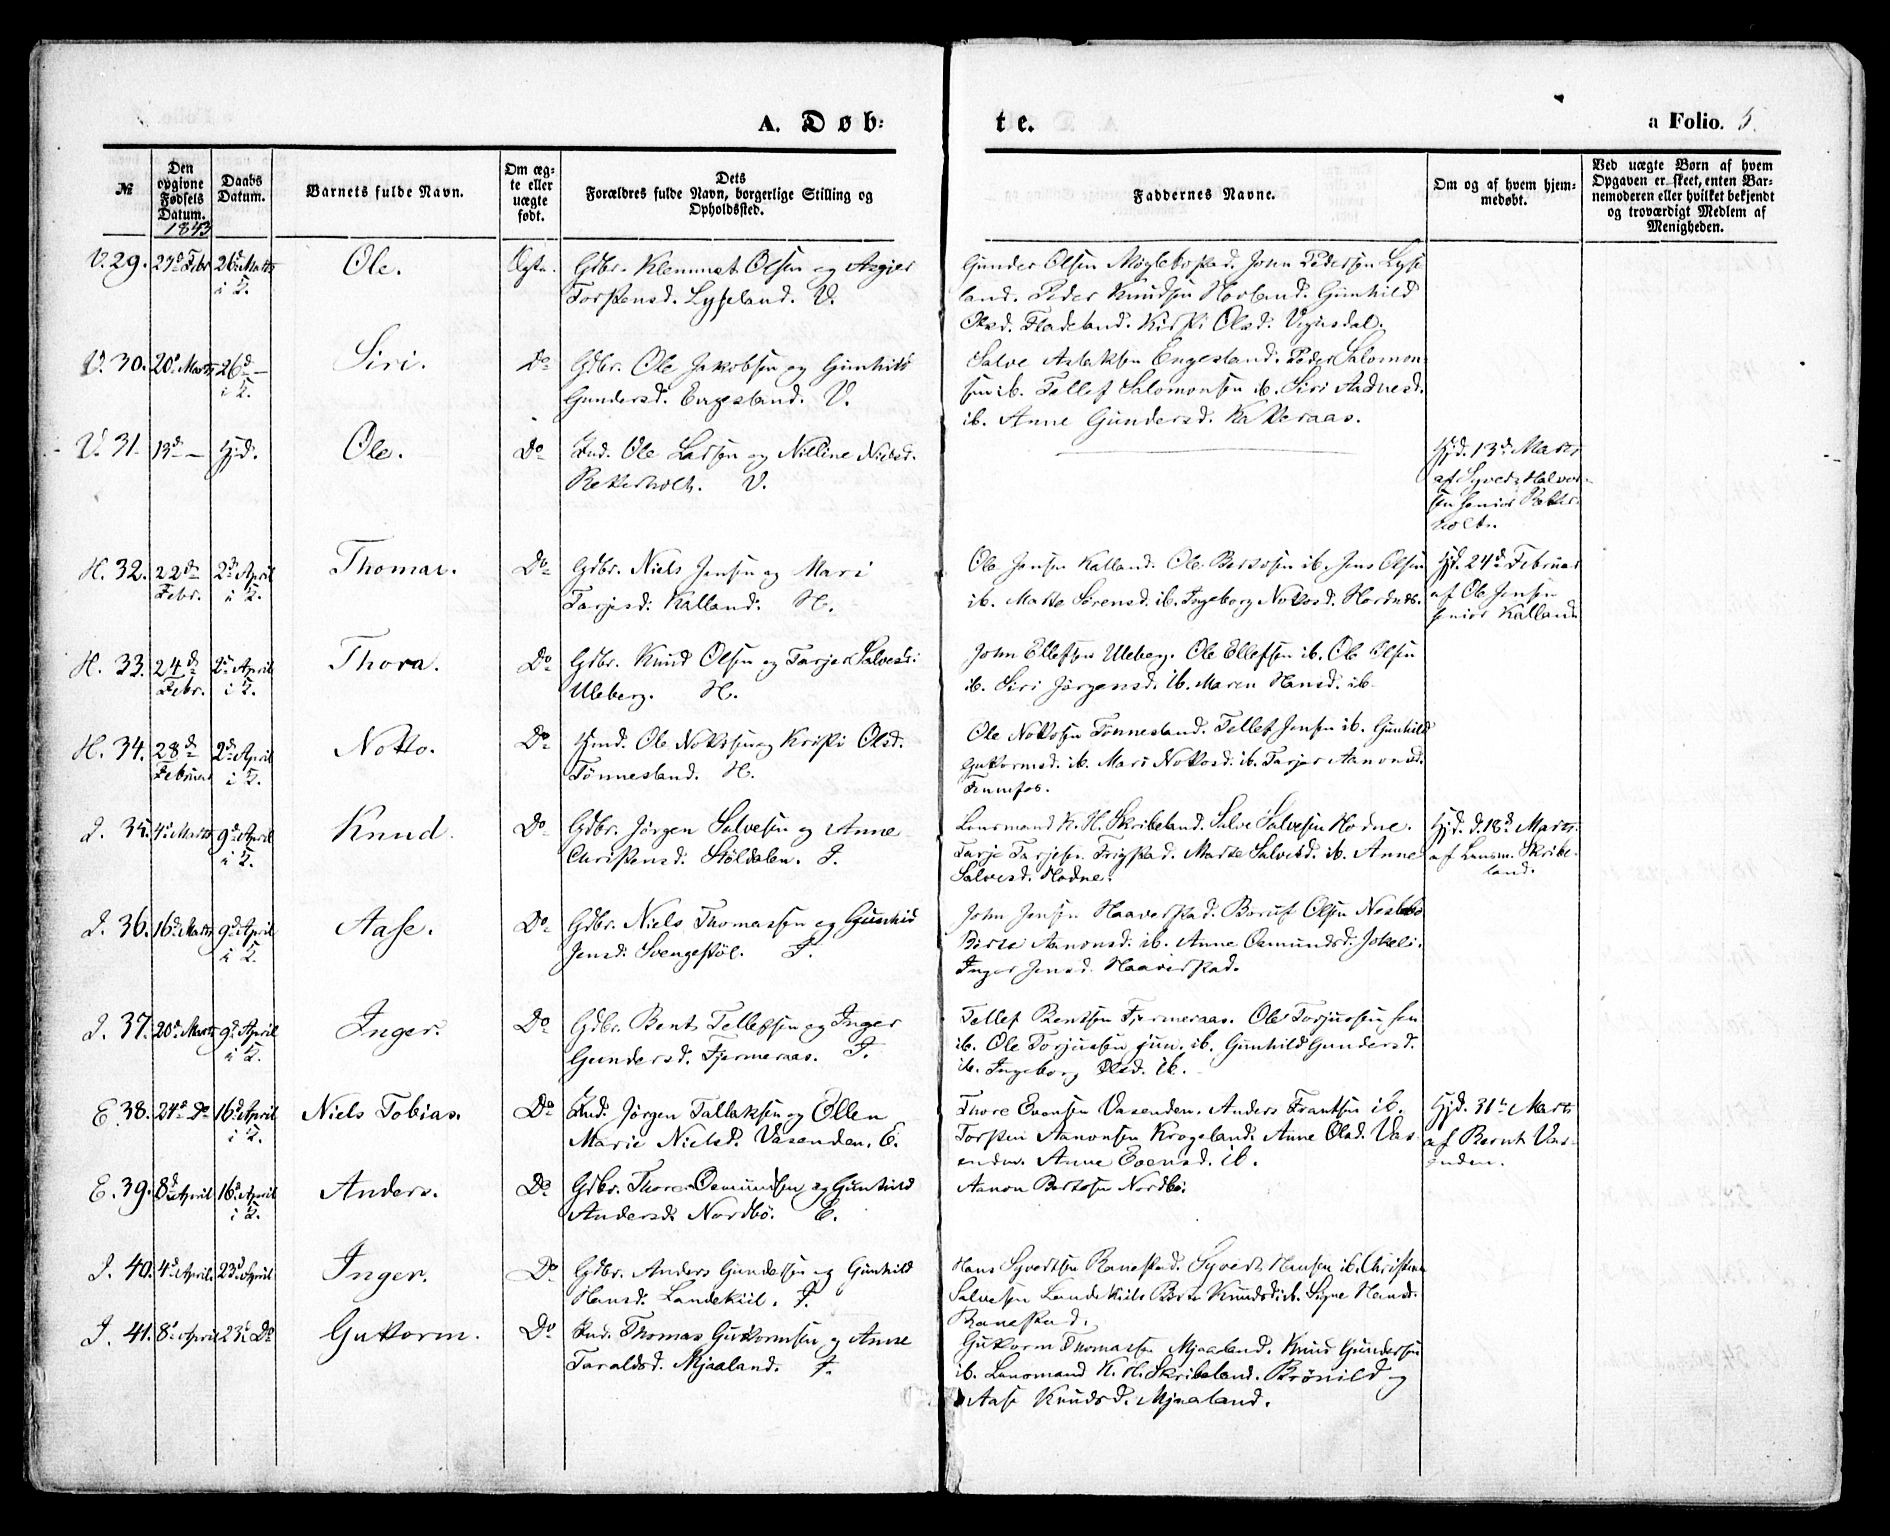 A. Døb=
te.
a Folio. 5.
№
Den opgivne Fødsels Datum.
1843
Daabs Datum.
Barnets fulde Navn.
Om ægte eller uægte født.
Dets
Forældres fulde Navn, borgerlige Stilling og
Opholdssted.
Faddernes Navne.
Om og af hvem hjemmedøbt.
Ved uægte Børn af hvem
Opgaven er skeet, enten Barnemoderen eller hvilket bekjendt
og troværdigt Medlem af
Menigheden.
V. 29. Febr. 26d Marts i T. Ole. Ægte. Gdbr. Klemmet Olsen og Asgjer
Torstensd. Lyseland. V.
Gunder Olsen Møglebostad. John Pedersen Lyse
land. Peder Knudsen Hovland. Gunhild
Olsd. Fladeland. Kirsti Olsd.
V. 30. 20d Marts 26d — i T. Siri. Do Gdbr. Ole Jakobsen og Gunhild
Gundersd. Engesland. V.
Salve Aslaksen Engesland. Peder Salomon-
sen ib. Tellef Salomonsen ib. Siri Aadnesd.
ib. Anne Gundersd. Katteraas.
V. 31 13d — Hjd. Ole. Do Ind. Ole Larsen og Nilline Nielsd.
Retterholt. V.
Hjd. 13d Marts
af Syvert Halvor-
sen senior Retter-
holt.
H. 32. 22d Febr. 2d April i T. Thomas. Do Gdbr. Niels Jensen og Mari
Tarjesd. Kalland. H.
Ole Jensen Kalland. Ole Bertosen ib. Jens Olsen
ib. Marte Sørensd. ib. Ingeborg Nottosd.
Hjd. 24d Februar
af Ole Jensen
senior Kalland
H. 33. 24d Febr. 2d April i T. Thora. Do Gdbr. Knud Olsen og Tarjer Salvesd.
Uleberg. H.
John Ellefsen Uleberg. Ole Ellefsen ib. Ole Olsen
ib. Siri Jørgensd. ib. Maren Hansd. ib.
H. 34. 28d Februar 2d April i T. Notto. Do Hmd. Ole Nottosen og Kristi Olsd.
Tønnesland. H.
Ole Nottosen Tønnesland. Tellef Jensen ib. Gunhild
Guttormsd. ib. Mari Nottosd. ib. Tarjer Aanonsd.
I. 35. 4d Marts 9d April i T. Knud. Do Gdbr. Jørgen Salvesen og Anne
Christensd. Støldalen. I.
Lensmand K. H. Skribeland. Salve Salvesen Hodne.
Tarje Tarjesen Frigstad. Marte Salvesd. ib. Anne
Salvesd. Hodne.
Hjd. d. 18d Marts
af Lensm. Skribe-
land.
I. 36. 16d Marts 9d April i T. Aase. Do Gdbr. Niels Thomassen og Gunhild
Jensd. Svengestøl. I.
John Jensen Haaverstad. Boruf Olsen
Birte Aanonsd. ib. Anne Osmundsd. Jokeli.
Inger Jensd. Haaverstad.
I. 37. 20d Marts 9d April i T. Inger. Do Gdbr. Bent Tellefsen og Inger
Gundersd. Fjermeraas. I.
Tellef Bentsen Fjermeraas. Ole Torjussen sen
ib. Ole Torjussen jun. ib. Gunhild Gundersd.
ib. Ingeborg Olsd. ib.
E. 38. 24d Do 16d April i T. Niels Tobias. Do Ind. Jørgen Tallaksen og Ellen
Marie Nielsd. Vasenden. E.
Thore Evensen Vasenden. Anders Frantsen ib.
Torsten Aanonsen Krogeland. Anne Olsd. Vas-
enden. Anne Evensd. ib.
Hjd. 31te Marts
af Bernt Vas-
enden.
E. 39. 8d April 16d April i T. Anders. Do Gdbr. Thore Osmundsen og Gunhild
Andersd. Nordbø. E.
Aanon Bertosen Nordbø.
I. 40. 4d April. 23d April Inger. Do Gdbr. Anders Gundersen og Gunhild
Hansd. Landekiil. I.
Hans Syvertsen Ranestad. Syvert Hansen ib. Christen
Salvesen Landekiil. Berte Knudsd. ib. Signe Hansd.
Ranestad.
I. 41. 8d April 23d Do Guttorm. Do Ind. Thomas Guttormsen og Anne
Taraldsd. Mjaaland. I.
Guttorm Thomassen Mjaaland. Knud Gundersen
ib. Lensmand K. H. Skribeland. Brønild og
Aase Knudsd. Mjaaland.